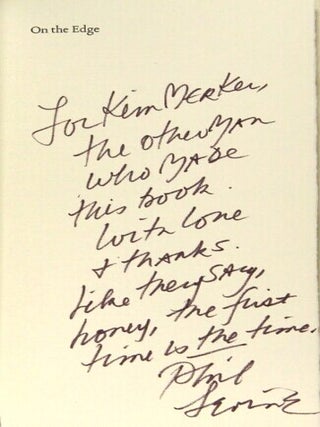 On the Edge
For Kim Merker,
the other man
who made
this book.
With love
& thanks.
Like they say,
honey, the first
time is the time.
Phil
Levine